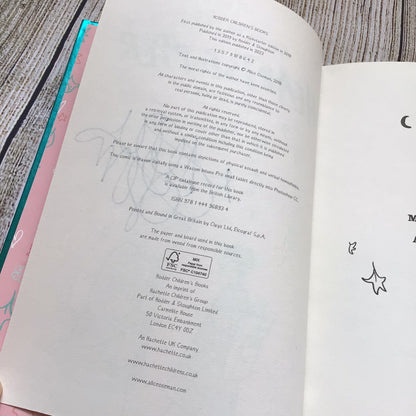 HODDER CHILDREN'S BOOKS
First published by the author as a Kickstarter edition in 2016
Published in 2019 by Hodder & Stoughton
This edition published in 2023
1 3 5 7 9 10 8 6 4 2
Text and illustrations copyright © Alice Oseman, 2016
The moral rights of the author have been asserted.
All characters and events in this publication, other than those clearly
in the public domain, are fictitious and any resemblance to
real persons, living or dead, is purely coincidental.
All rights reserved.
No part of this publication may be reproduced, stored in
a retrieval system, or transmitted, in any form or by any means, without
the prior permission in writing of the publisher, nor be otherwise circulated
in any form of binding or cover other than that in which it is published
and without a similar condition including this condition being
imposed on the subsequent purchaser.
Please be aware that this book contains depictions of physical assault and verbal homophobia.
This comic is drawn digitally using a Wacom Intuos Pro small tablet directly into Photoshop CC.
A CIP catalogue record for this book
is available from the British Library.
ISBN 978 1 444 96893 4
Printed and Bound in Great Britain by Clays Ltd, Elcograf S.p.A.
The paper and board used in this book
are made from wood from responsible sources.
FSC
MIX
Paper from
responsible sources
FSC® C104740
Hodder Children's Books
An imprint of
Hachette Children's Group
Part of Hodder & Stoughton Limited
Carmelite House
50 Victoria Embankment
London EC4Y 0DZ
An Hachette UK Company
www.hachette.co.uk
www.hachettechildrens.co.uk
www.aliceoseman.com
M